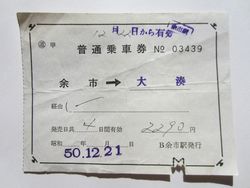 12月22日から有効
普通乗車券 № 03439
余市 → 大湊
経由
発売日共 4 日間有効 2290 円
昭和 年 月 日 B余市駅発行
50.12.21